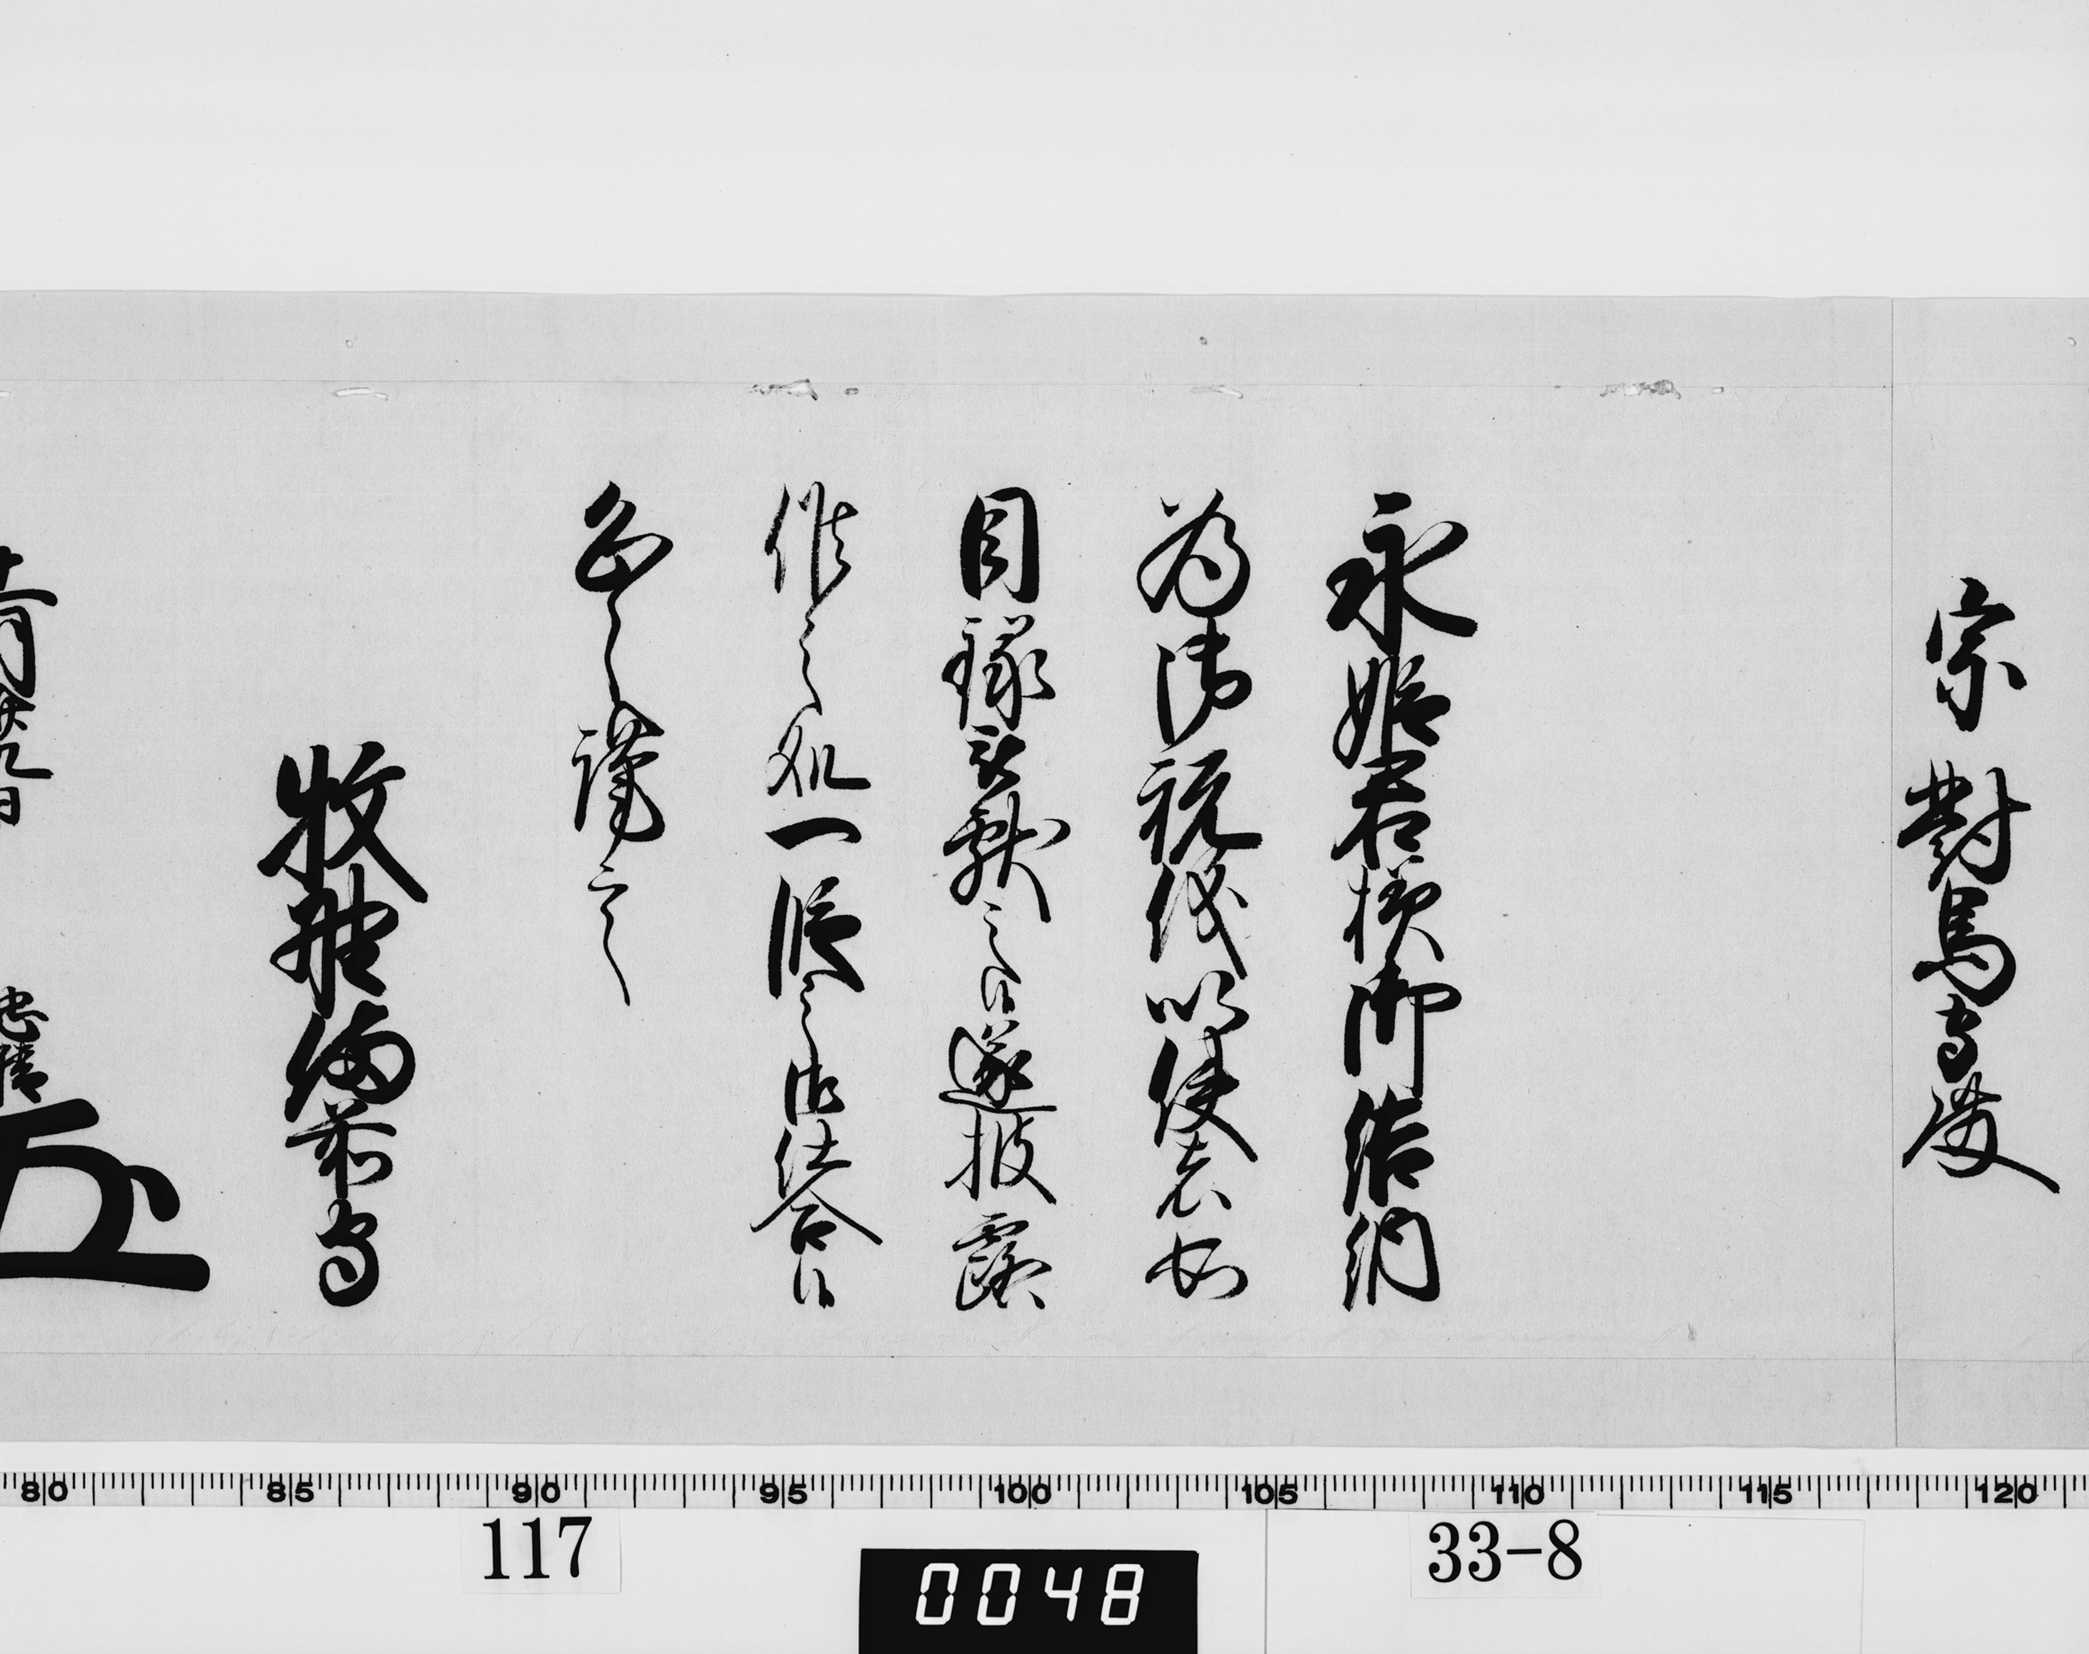 宗對馬守殿
永姫君様御結納
為御祝儀以使者如
目録被献之候遂披露
候之処一段之御仕合候
恐々謹言
牧野備前守
九日
忠精
80 85 90 95 100 105 110 115 120
117
33-8
0048